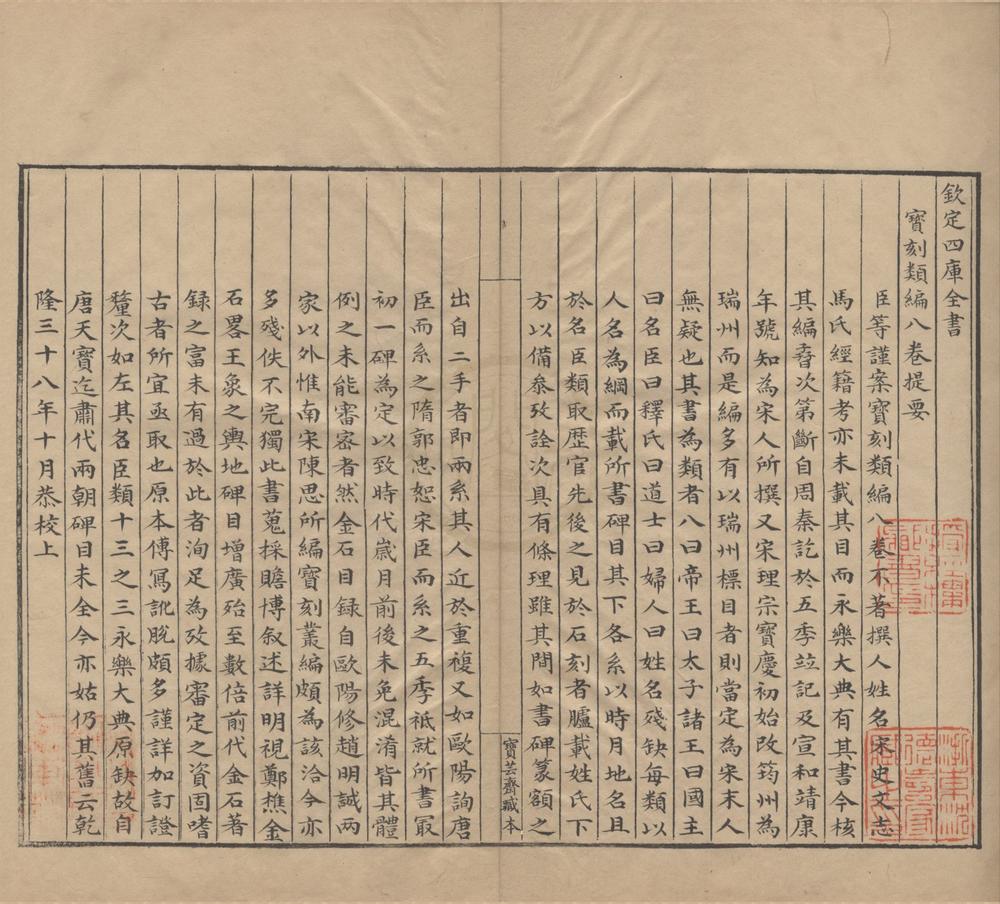 欽定四庫全書
寶刻類編八卷提要
臣等謹案寶刻類編八卷不著撰人姓名宋史文志
馬氏經籍考亦未載其目而永樂大典有其書今核
其編㫷次第斷自周秦訖於五季竝記及宣和靖康
年號知為宋人所撰又宋理宗寶慶初始改筠州為
瑞州而是編多有以瑞州標目者則當定為宋末人
無疑也其書為類者八曰帝王曰太子諸王曰國主
曰名臣曰釋氏曰道士曰婦人曰姓名殘缺每類以
人名為綱而載所書碑目其下各系以時月地名且
於名臣類取歴官先後之見於石刻者臚載姓氏下
方以備叅攷詮次具有條理雖其間如書碑篆額之
寶芸齋緘本
出自二手者即兩系其人近於重複又如歐陽詢唐
臣而系之隋郭忠恕宋臣而系之五季祇就所書冣
初一碑為定以致時代嵗月前後未免混淆皆其體
例之未能審密者然金石目録自歐陽修趙明誠兩
家以外惟南宋陳思所編寶刻叢編頗為該洽今亦
多殘佚不完獨此書蒐採贍博叙述詳明視鄭樵金
石畧王象之輿地碑目增廣殆至數倍前代金石著
録之富未有過於此者洵足為攷據審定之資固嗜
古者所宜亟取也原本傳寫訛脫頗多謹詳加訂證
釐次如左其名臣類十三之三永樂大典原缺故自
唐天寶迄肅代兩朝碑目未全今亦姑仍其舊云乾
隆三十八年十月恭校上